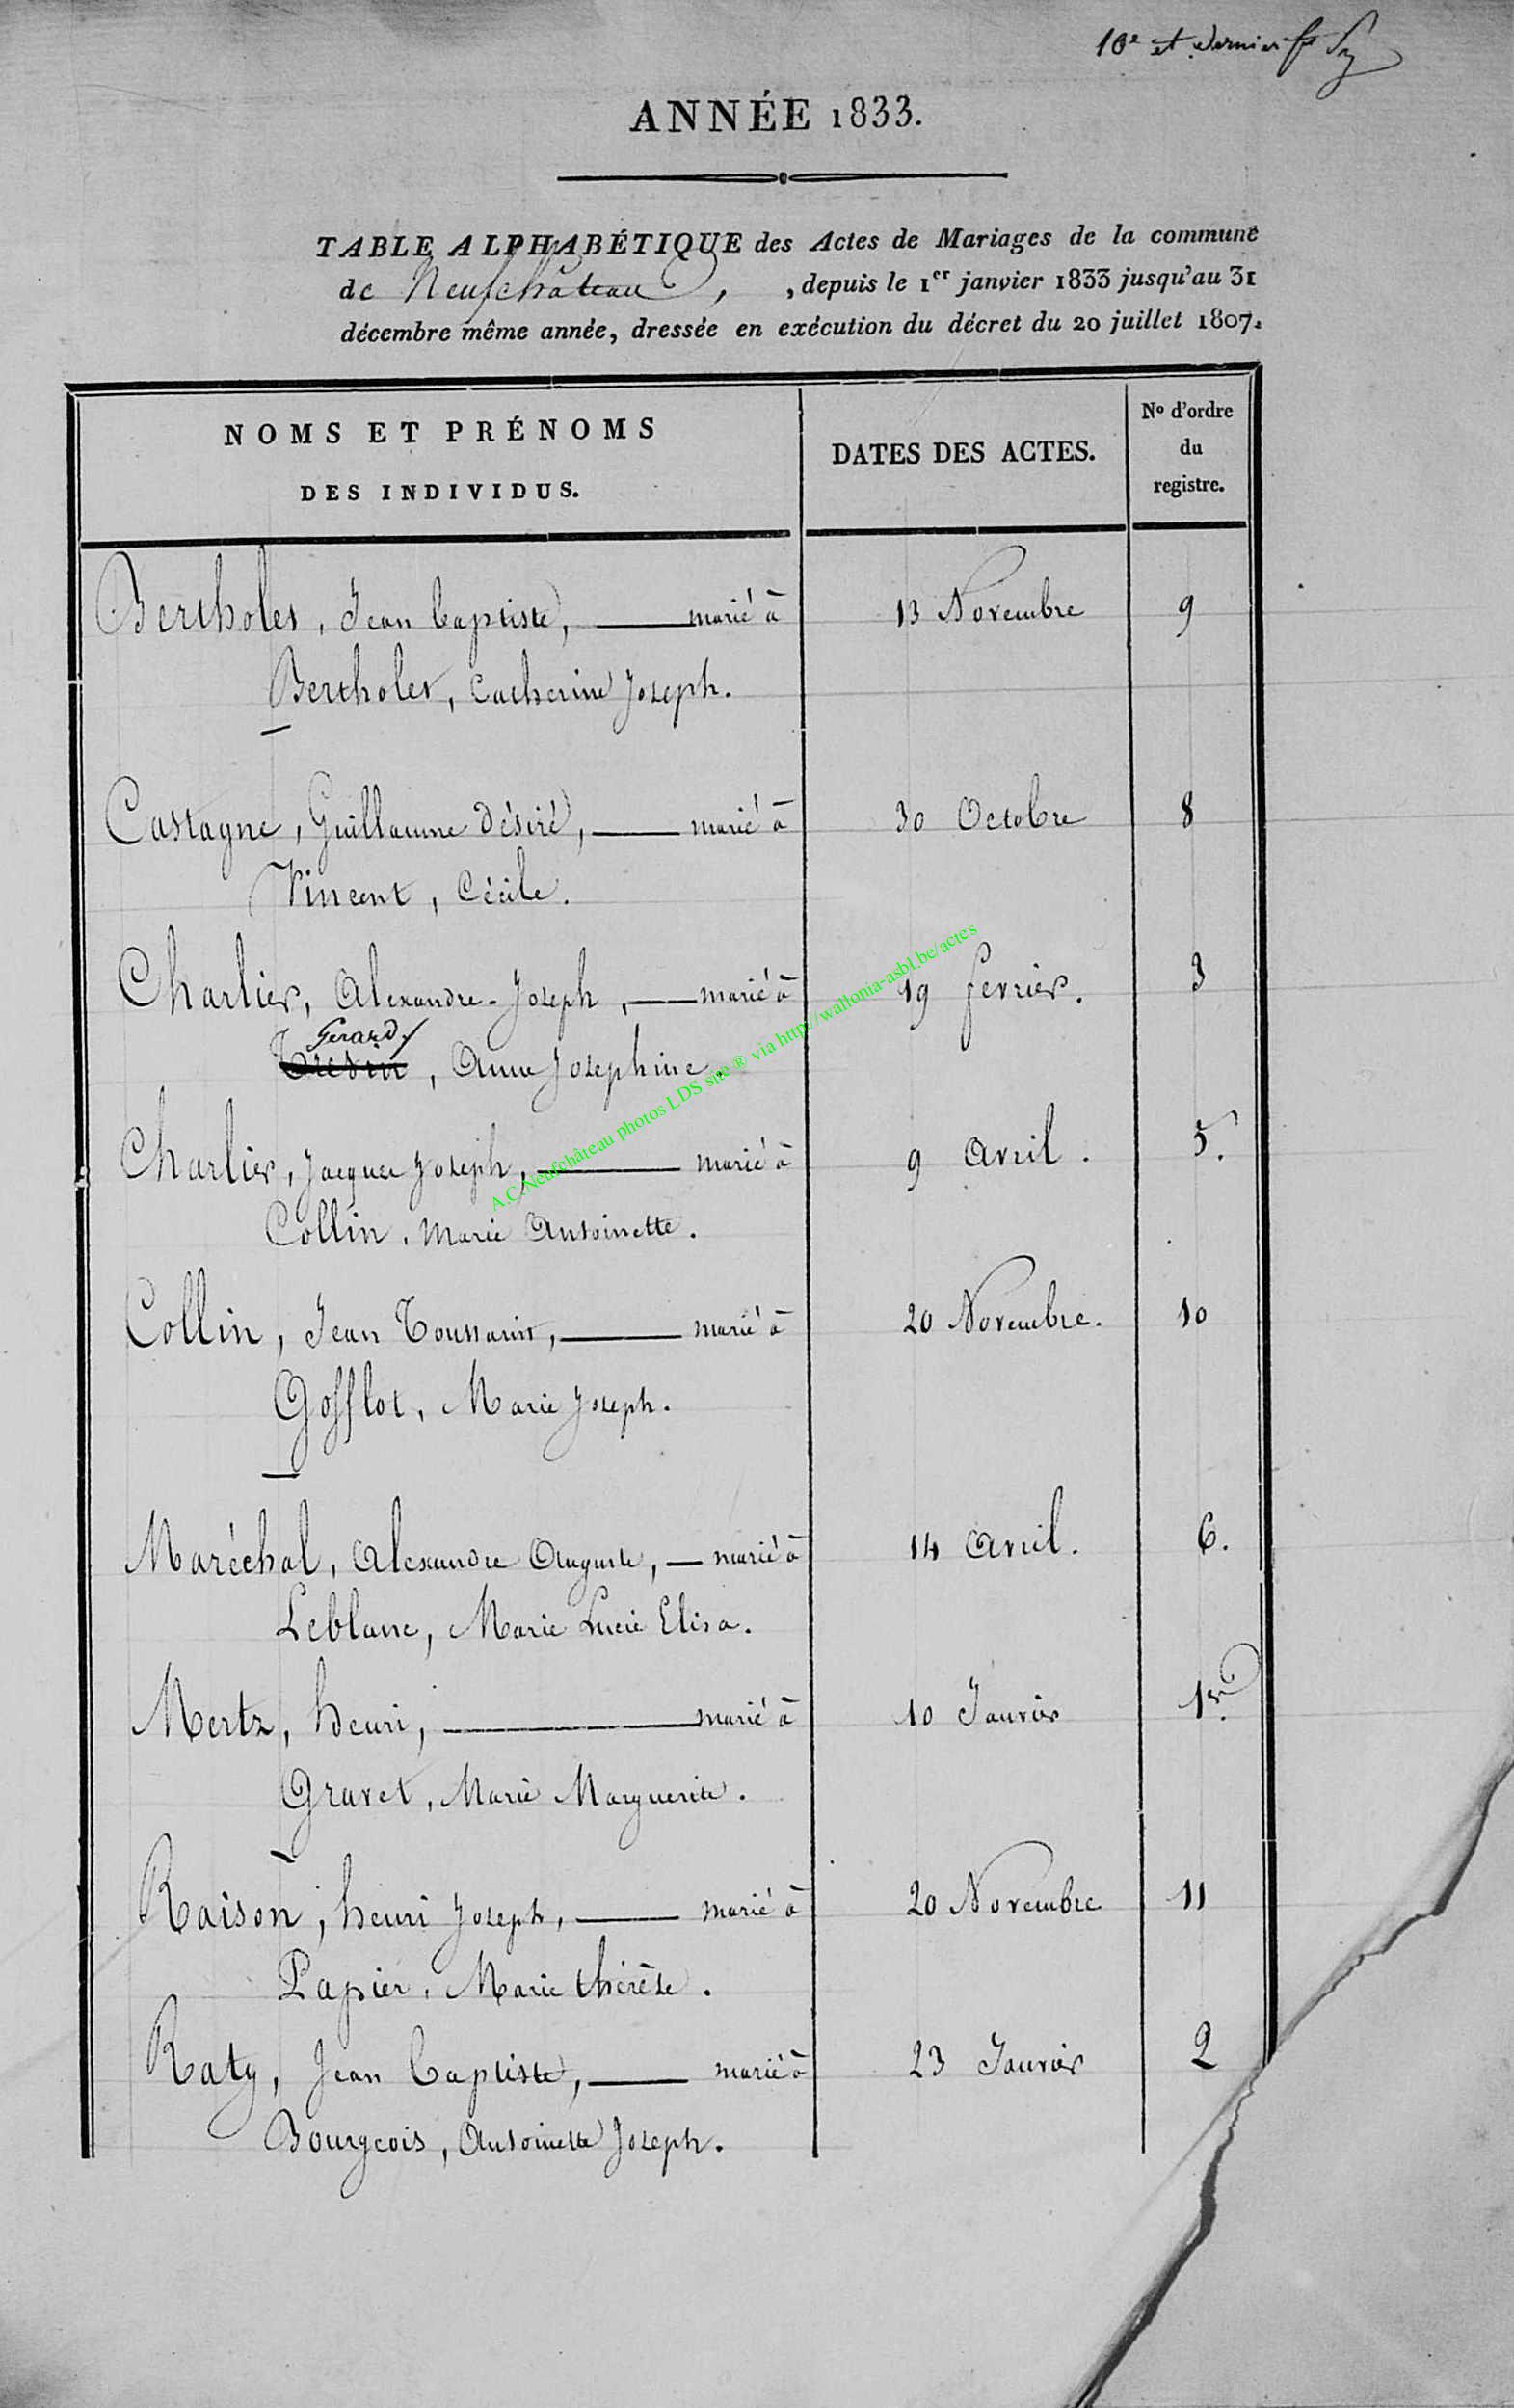 10e et dernier
ANNÉE 1833.
TABLE ALPHABÉTIQUE des Actes de Mariages de la commune
de Neufchâteau, , depuis le 1er janvier 1833 jusqu'au 31
décembre même année, dressée en exécution du décret du 20 juillet 1807.
NOMS ET PRÉNOMS
DES INDIVIDUS.
DATES DES ACTES.
No d'ordre
du
registre.
Bertholet, Jean baptiste, marié à 13 Novembre 9
Bertholet, Catherine Joseph.
Castagne, Guillaume Désiré, marié à 30 Octobre 8
Vincent, Cécile.
Charlier, Alexandre-Joseph, marié à 19 fevrier. 3
Gerard
, Anne Josephine.
Charlier, Jacques Joseph, marié à 9 avril. 5.
Collin, Marie Antoinette.
Collin, Jean Toussaint, marié à 20 Novembre. 10
Gofflot, Marie Joseph.
Maréchal, Alexandre Auguste, marié à 14 avril. 6.
Leblanc, Marie Lucie Elisa.
Mertz, henri, marié à 10 Janvier 1er
Gravet, Marie Marguerite.
Raison, henri Joseph, marié à 20 Novembre 11
Papier, Marie thérèse.
Raty, Jean baptiste, marié à 23 Janvier 2
Bourgeois, Antoinette Joseph.
A.C.Neufchâteau photos LDS site ® via http://wallonia-asbl.be/actes